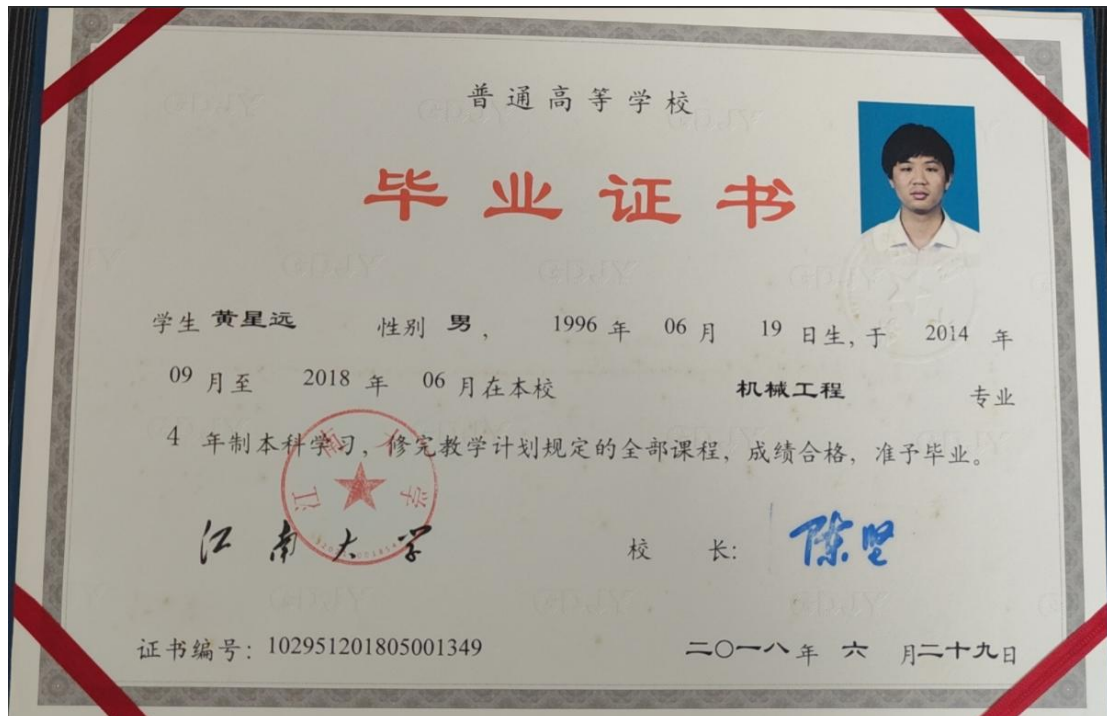 普通高等学校
毕业证书
学生 黄星远 性别 男， 1996 年 06 月 19 日生，于 2014 年
09 月至 2018 年 06 月在本校 机械工程 专业
4 年制本科学习，修完教学计划规定的全部课程，成绩合格，准予毕业。
江南大学 校 长：陈坚
证书编号：102951201805001349 二〇一八年 六 月二十九日